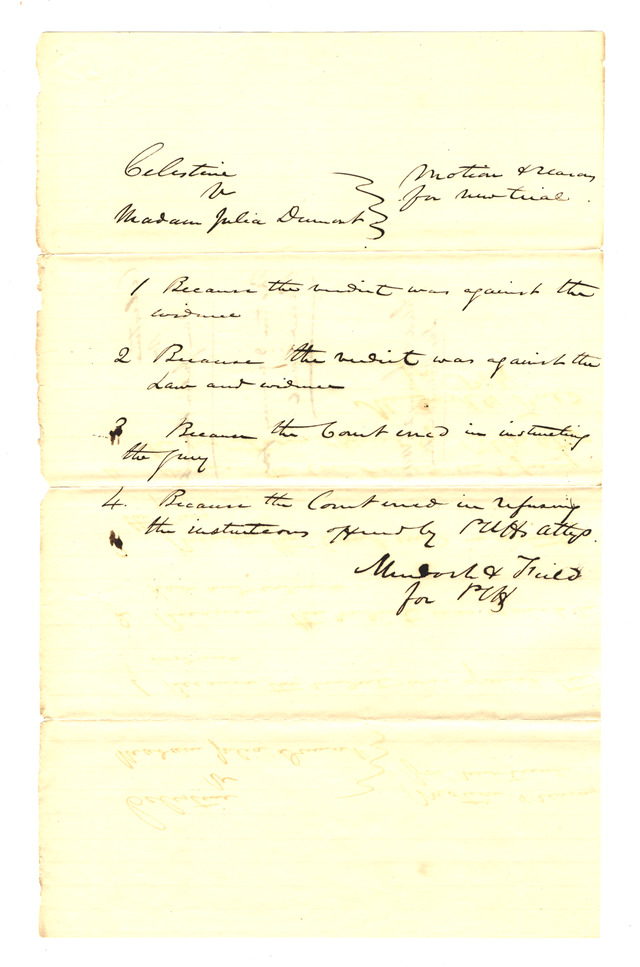 Celestine
v
Madam Julia Dumont
Motion & reasons
for new trial.
1 Because the verdict was against the
evidence
2 Because the verdict was against the
Law and evidence
3 Because the Court erred in instructing
the jury
4. Because the Court erred in refusing
the instructions offered by Pltffs attys.
Murdoch & Field
for Pltff